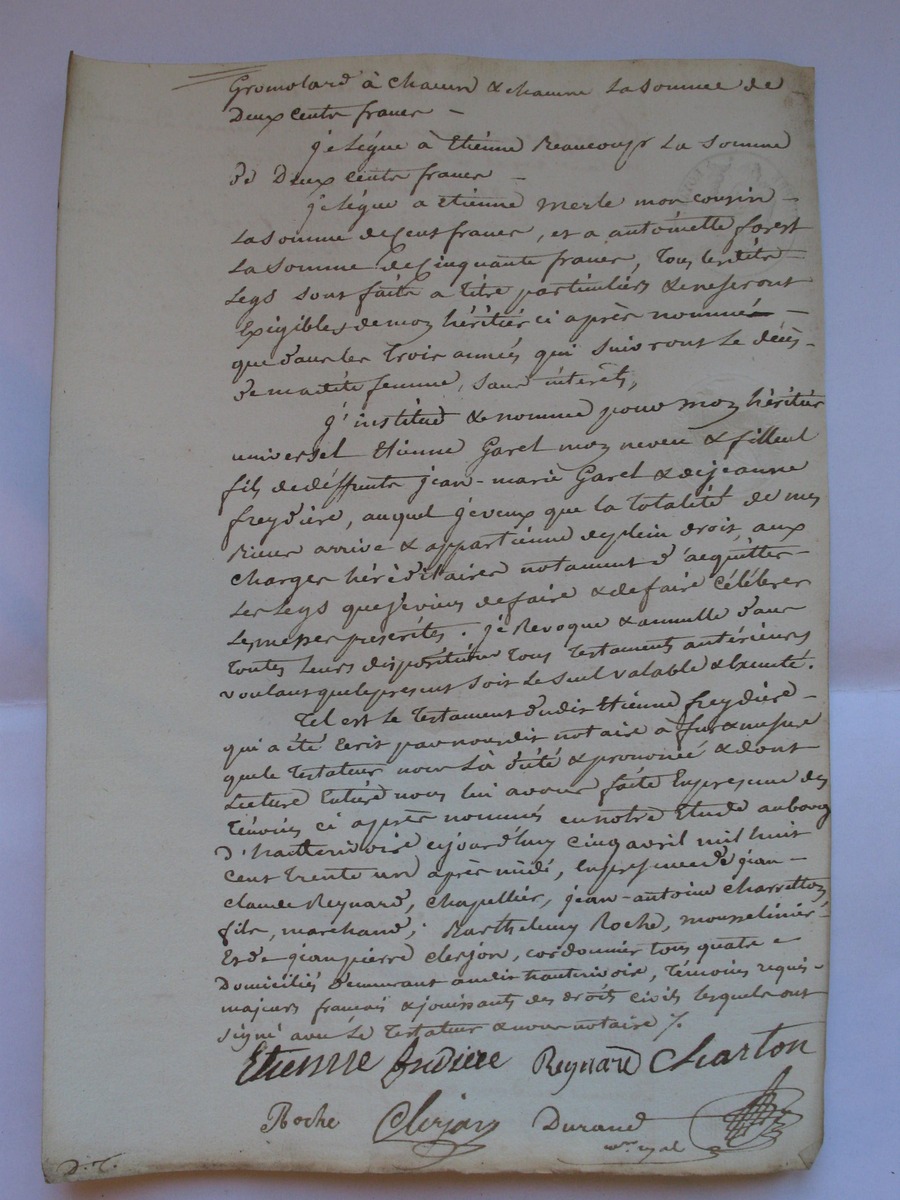 Gromolard à chacun & chacune La Somme de
Deux cents francs —
je Légue à Etiénne Beaucoup La Somme
de Deux cents francs —
je Légue a etienne merle mon cousin —
La Somme de Cent francs, et a antoinette forest
La Somme de Cinquante francs, Tous lesdits
Legs sont faits a Titre particuliérs & ne seront
Exigibles de mon héritiér ci après nommé —
que dans les Trois années qui Suivront Le décès
de madite femme, Sans intérêts,
J'institue & nomme pour mon héritiér
universel Etienne Garel mon neveu & filleul
fils de déffunts jean-marie Garel & de jeanne
freydiére, auquel je veux que la Totalité de mes
Biens arrive & appartienne de plein droit, aux
Charges héréditaires notament d'acquitter
Les Legs que je viens de faire & de faire Célébrer
Les messes prescrites. je Revoque & annulle dans
Toutes Leurs dispositions Tous Testaments antérieurs
voulant que le présent Soit Le Seul valable & Exécuté.
Tel est Le Testament dudit Etienne freydiére —
qui a été Ecrit par nous dit notaire à fur & mesure
que le Testateur nous L'a dicté & prononcé & dont
Lecture Entiére nous lui avons faite En presence des
Témoins ci après nommés en notre Etude au bourg
D'hauterivoire cejourd'huy cinq avril mil huit
Cent Trente un après midi, En presence de jean —
claude Reynard, Chapellier, jean-antoine Charretton
fils, marchand, Barthelemy Roche, mousseliniér
Et de jean pierre clerjon, cordonnier tous quatre
Domiciliés demeurant audit hauterivoire, Témoins requis
majeurs français & jouissants des droits civils lesquels ont
Signé avec Le Testateur & nous notaire /.
Etienne fredière Reynard Charton
Roche Clerjon Durand
D.T.